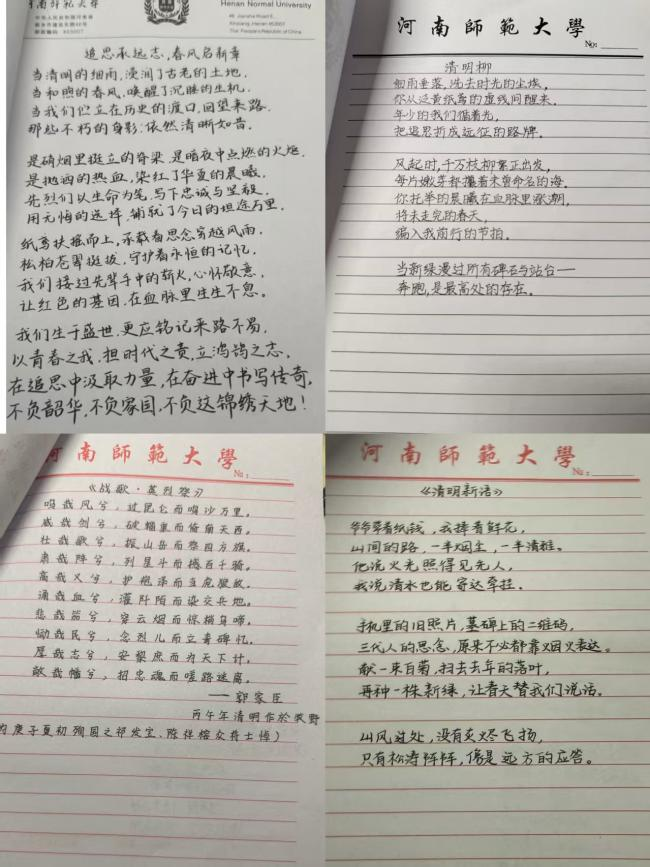 河南师范大学
中华人民共和国河南
新乡市建设东路46号
邮政编码 453007
Henan Normal University
46 Jianshe Road E.,
Xinxiang, Henan 453007
The People's Republic of China
追思承远志,春风启新章
当清明的细雨,浸润了古老的土地,
当和煦的春风,唤醒了沉睡的生机,
当我们伫立在历史的渡口,回望来路,
那些不朽的身影,依然清晰如昔。
是硝烟里挺立的脊梁,是暗夜中点燃的火炬,
是抛洒的热血,染红了华夏的晨曦,
先烈们以生命为笔,写下忠诚与坚毅,
用无悔的选择,铺就了今日的坦途万里。
纸鸢扶摇而上,承载着思念穿越风雨,
松柏苍翠挺拔,守护着永恒的记忆,
我们接过先辈手中的薪火,心怀敬意,
让红色的基因,在血脉里生生不息。
我们生于盛世,更应铭记来路不易,
以青春之我,担时代之责,立鸿鹄之志,
在追思中汲取力量,在奋进中书写传奇,
不负韶华,不负家国,不负这锦绣天地!
河南師範大學
No:
清明柳
细雨垂落,洗去时光的尘埃,
你从泛黄纸鸢的虚线间醒来,
年少的我们循着光,
把追思折成远征的路牌。
风起时,千万枝柳絮正出发,
每片嫩芽都攥着未曾命名的海,
你托举的晨曦在血脉里涨潮,
将未走完的春天,
编入我前行的节拍。
当新绿漫过所有碑石与站台——
奔跑,是最高处的存在。
河南師範大學
No:
《战歌·英烈祭》
鸣我风兮,过昆仑而鸣沙万里。
威我剑兮,破幅重而倚角天西。
壮我歌兮,振山岳而祭四方旗。
肃我阵兮,列星斗而撼百千骑。
高我义兮,护袍泽而立虎狼敌。
涌我血兮,灌阡陌而染交兵地。
悲我笛兮,穿云烟而惊鹊乌啼。
恸我民兮,念烈儿而立青碑忆。
厚我志兮,安黎庶而为天下计。
献我幡兮,招忠魂而嗟路迷离。
——郭家臣
丙午年清明作於牧野
为庚子夏初殉国之祁发宝、陈祥榕众将士悼)
河南師範大學
No:
《清明新语》
爷爷拿着纸钱,我捧着鲜花,
山间的路,一半烟尘,一半清雅。
他说火光照得见先人,
我说清水也能寄达牵挂。
手机里的旧照片,墓碑上的二维码,
三代人的思念,原来不必都靠烟火表达。
献一束白菊,扫去去年的落叶,
再种一株新绿,让春天替我们说话。
山风过处,没有灰烬飞扬,
只有松涛阵阵,像是远方的应答。